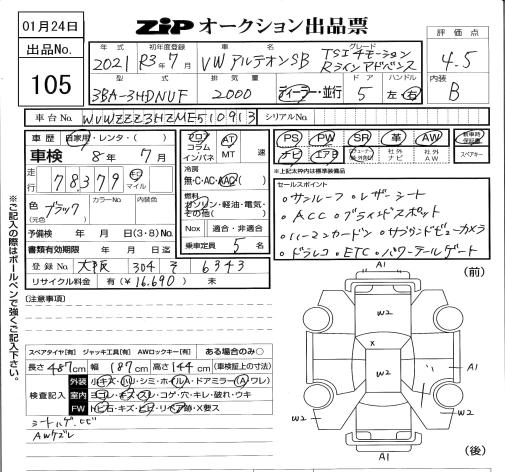 01月24日
出品No.
105
ZIP オークション出品票
評価点
4.5
内装
B
年式 初年度登録 車名 グレード
2021 R3年7月 VW アルテオンSB TSI 4モーション
Rラインアドバンス
型式 排気量 ドア ハンドル
3BA-3HDNUF 2000 ディーラー・並行 5 左・右
車台No. WVWZZZ3HZME510913 シリアルNo.
車歴 自家用・レンタ・( )
車検 8年 7月
走行 78379 Km マイル
色(元色) ブラック カラーNo. 内装色
予備検 年 月 日(3・8)No.
書類有効期限 年 月 日迄
登録No. 大阪 304 そ 6343
リサイクル料金 有(¥16.690) 未
フロア コラム インパネ AT MT 速
冷房
無・C・AC・WAC
燃料
ガソリン・軽油・電気・その他( )
Nox 適合・非適合
乗車定員 5 名
PS PW SR 革 AW 新車時保証書
ナビ エアB 社外ナビ 社外AW スペアキー
※上記太枠内は標準装備品
セールスポイント
・サンルーフ ・レザーシート
・ACC ・ブラインドスポット
・ハーマンカードン ・サラウンドビューカメラ
・ドラレコ ・ETC ・パワーテールゲート
※ご記入の際はボールペンで強くご記入下さい。
[注意事項]
スペアタイヤ[有] ジャッキ工具[有] AWロックキー[有] ある場合のみ○
長さ 487cm 幅 187cm 高さ 144cm (車検証の寸法)
検査記入
外装 小キズ・凹・シミ・ホイルA・ドアミラー(A・ワレ)
室内 ヨゴレ・キズ・スレ・コゲ・穴・キレ・破れ・ウキ
FW トビ石・キズ・ヒビ・リペア跡・X要ス
シートハゲ、ヒビ
AWズレ
(前)
A1
W2
X
W2
A1
W2
W2
A1
(後)